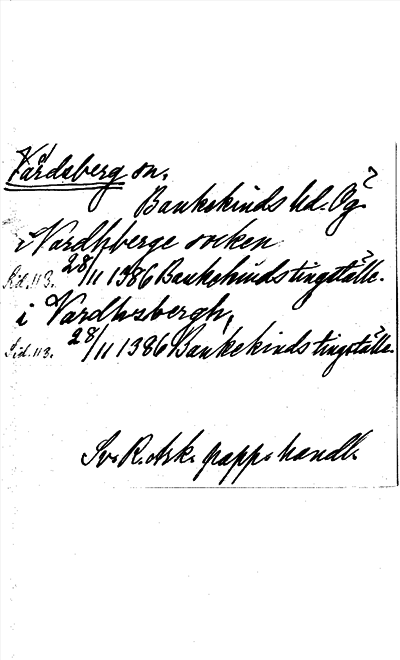 Vårdsberg sn.
Bankekinds hd. Ög.
i Vardhsberge socken
Sid. 113. 28/11 1386 Bankekinds tingställe.
i Vardhsbergh,
Sid. 113. 28/11 1386 Bankekinds tingställe.
Sv. R. Ark. papp. handl.